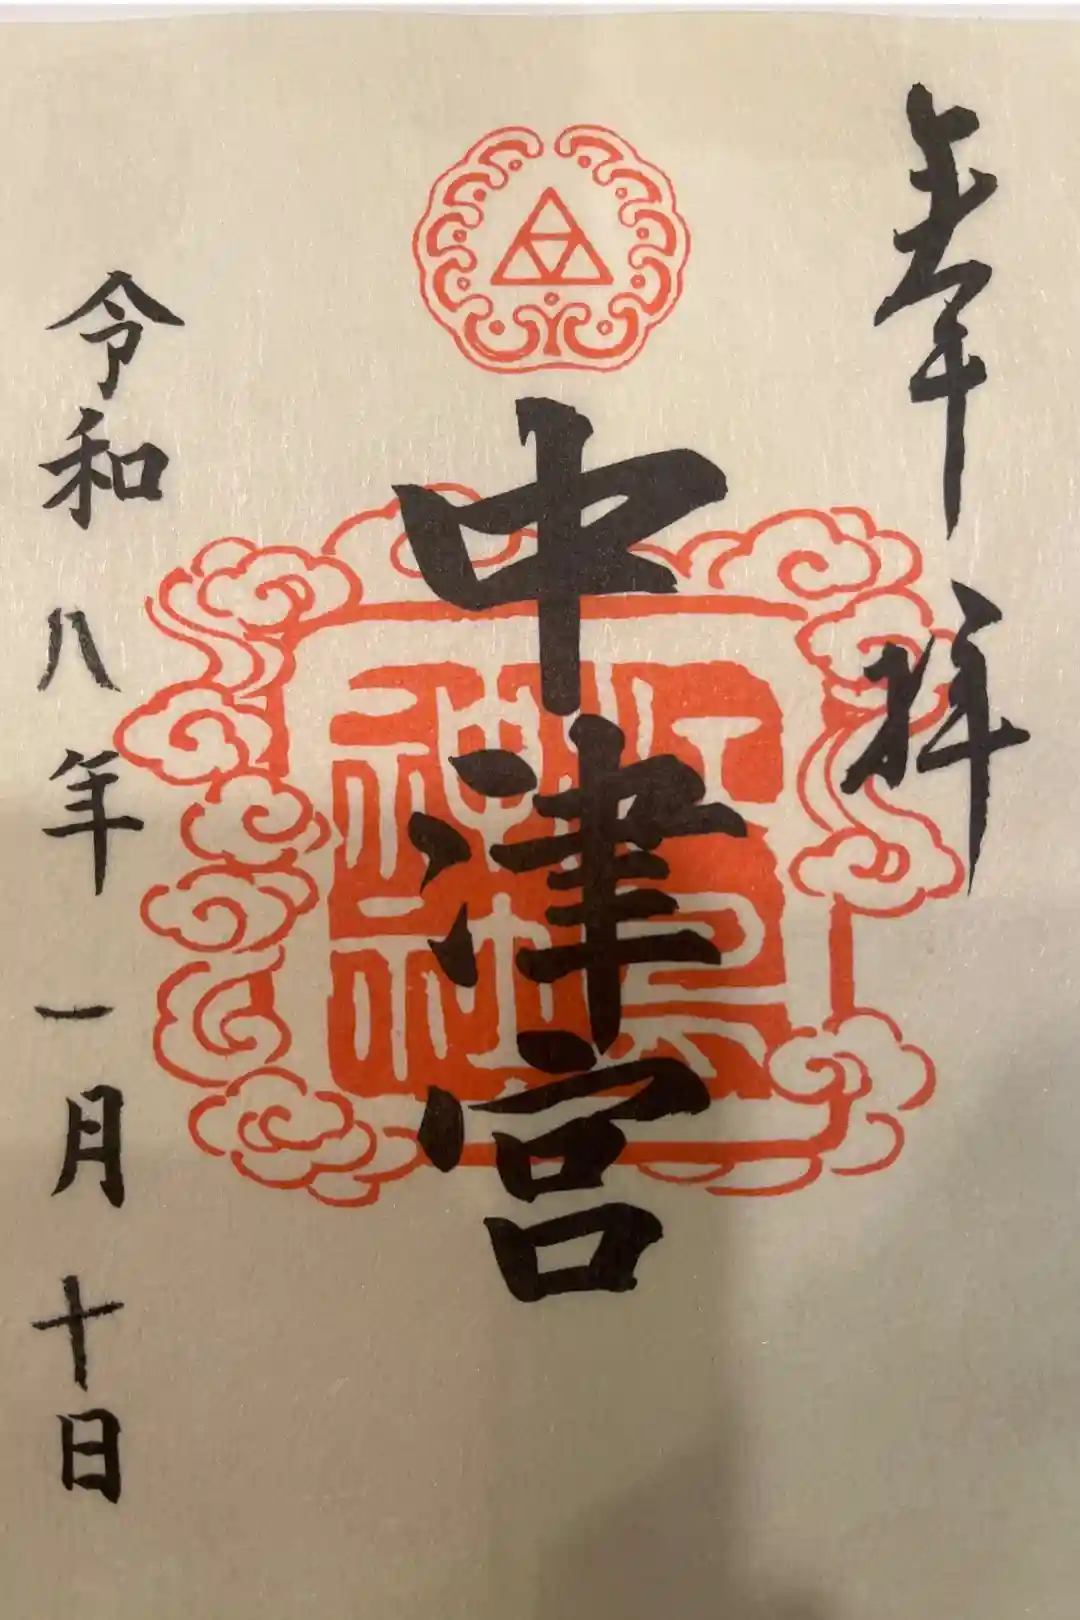 奉拝
中津宮
令和八年一月十日